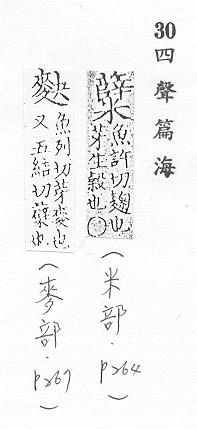 30四聲篇海
魚許切麴也
芽生穀也〇
(米部.P264)
魚列切芽麥也
又五結切 也
(麥部.P267)